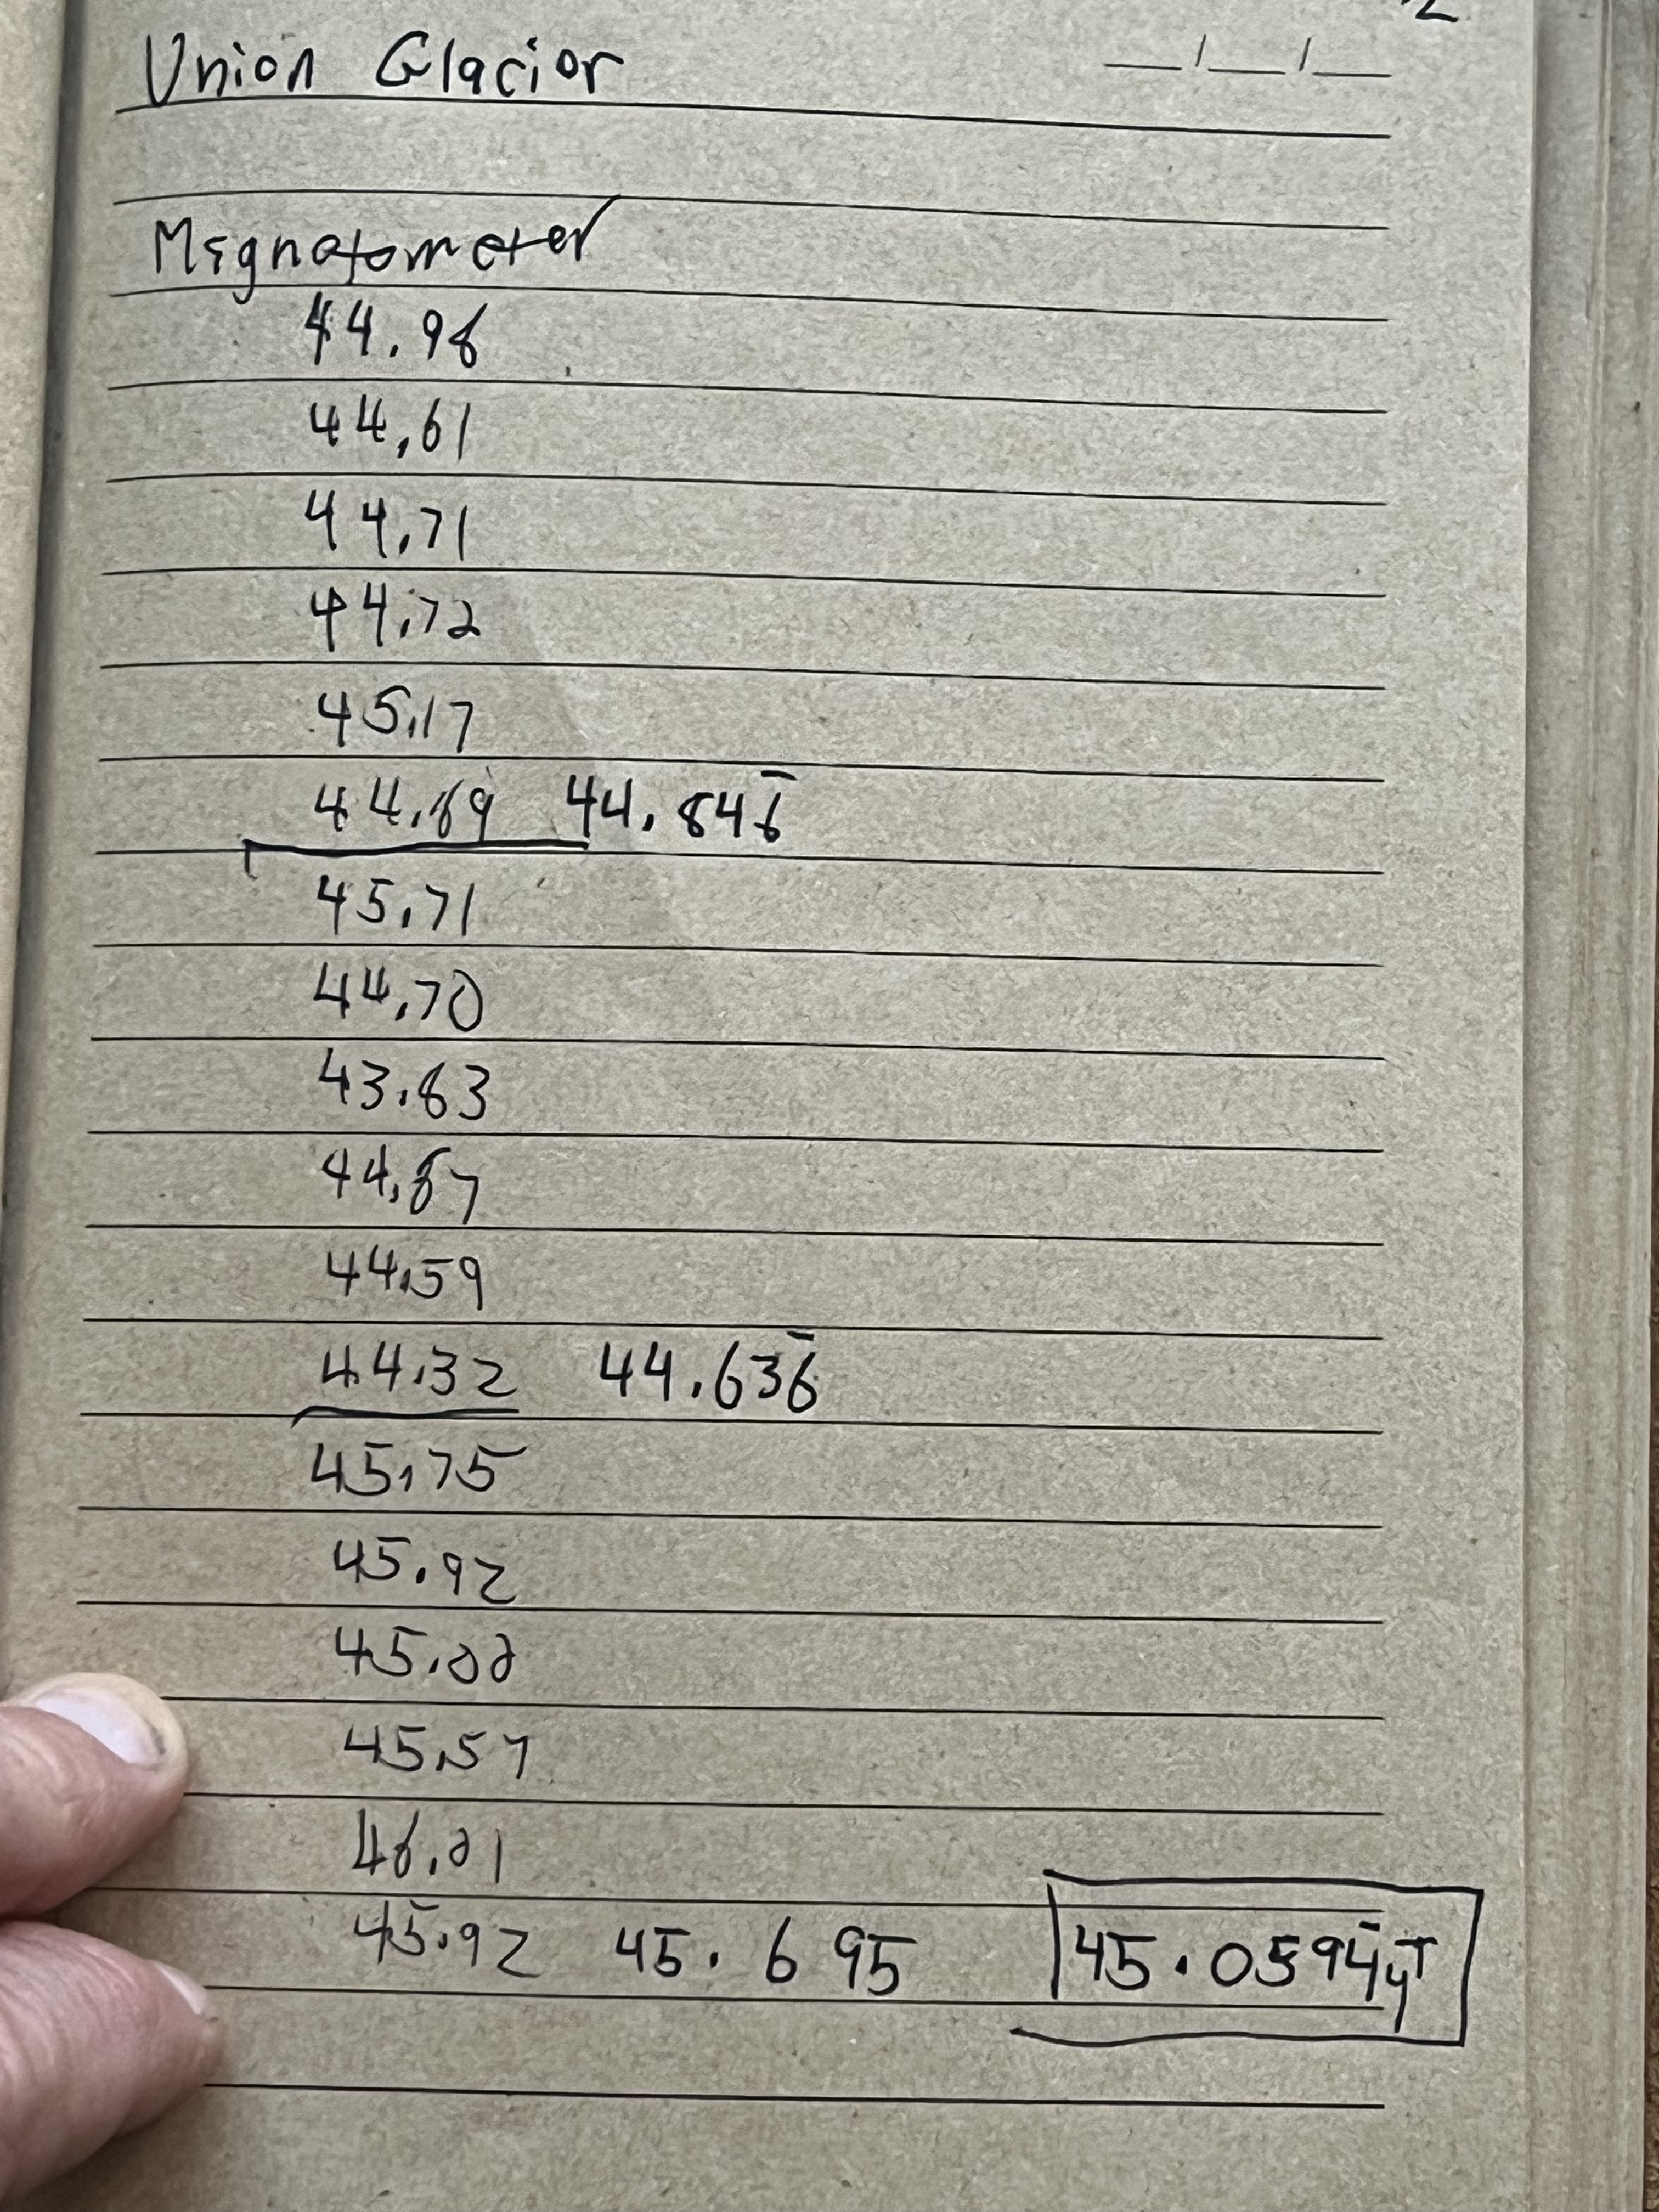 Union Glacior
__/__/__
Magnatometer
44.98
44.61
44.71
44.72
45.17
44.89 44.846̄
45.71
44.70
43.63
44.87
44.59
44.32 44.636̄
45.75
45.92
45.00
45.57
46.01
45.92 45.695 45.0594̄ μT